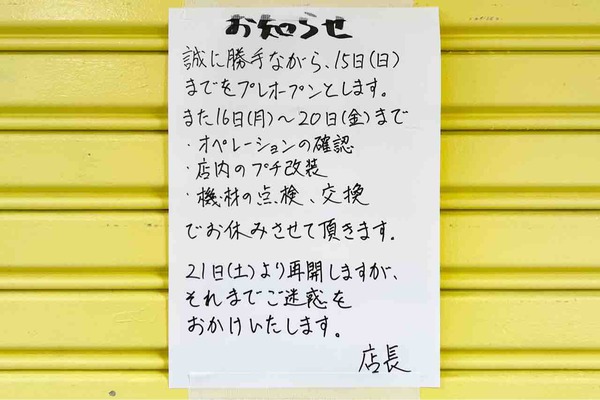 お知らせ
誠に勝手ながら、15日(日)
までをプレオープンとします。
また16日(月)～20日(金)まで
・オペレーションの確認
・店内のプチ改装
・機材の点検、交換
でお休みさせて頂きます。
21日(土)より再開しますが、
それまでご迷惑を
おかけいたします。
店長